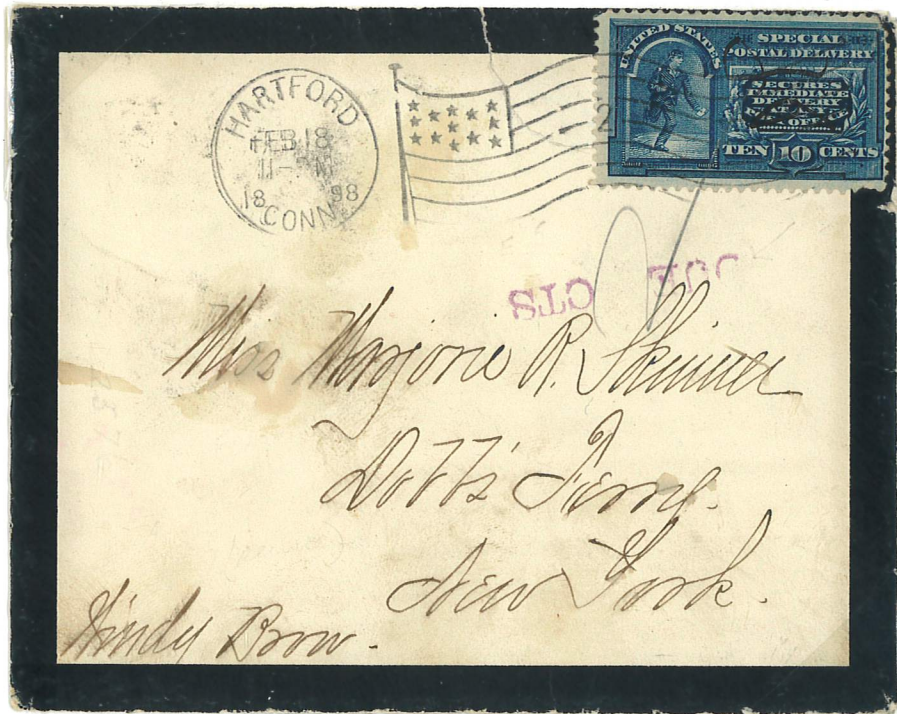 HARTFORD
FEB 18
11-
18 98
CONN
2
UNITED STATES
SPECIAL
POSTAL DELIVERY
SECURES
IMMEDIATE
DELIVERY
AT ANY
OFFICE
TEN 10 CENTS
DUE
CTS
Miss Marjorie R. Skinner
Dobb's Ferry.
New York.
Windy Brow.